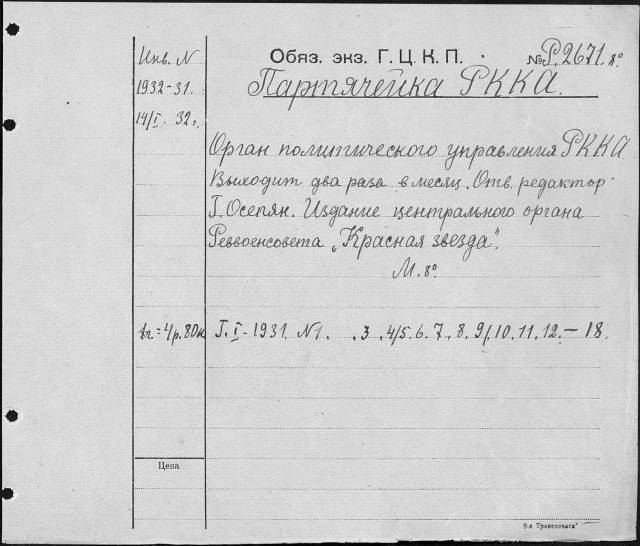 Инв. N
1932-31.
14/I. 32 г.
Обяз. экз. Г. Ц. К. П.
№ Р.2671.8º
Партячейка РККА.
Орган политического управления РККА.
Выходит два раза в месяц. Отв. редактор
Г. Осепян. Издание центрального органа
Реввоенсовета „Красная звезда".
М. 8º.
1г = 4р. 80к
Г. I - 1931. N 1. , 3, 4/5. 6. 7, 8, 9/, 10. 11. 12. — 18.
Цена